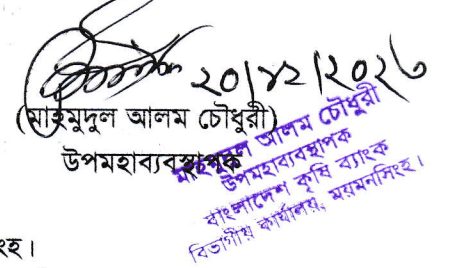 ২০/১২/২০২৩
(মাহমুদুল আলম চৌধুরী)
উপমহাব্যবস্থাপক
মাহমুদুল আলম চৌধুরী
উপমহাব্যবস্থাপক
বাংলাদেশ কৃষি ব্যাংক
বিভাগীয় কার্যালয়, ময়মনসিংহ।
ংহ।